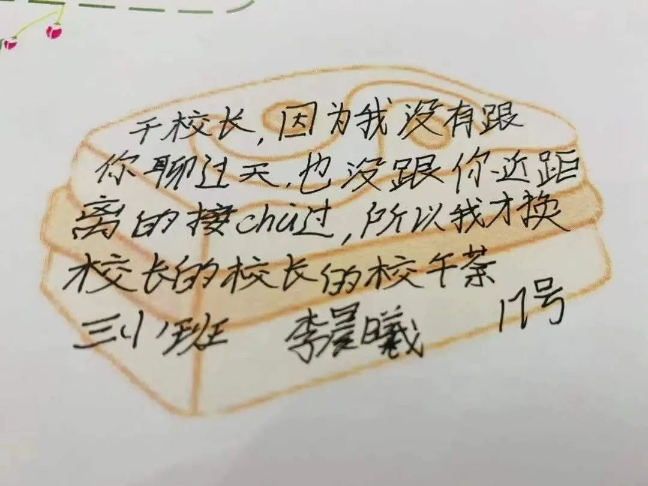 于校长，因为我没有跟
你聊过天，也没跟你近距
离的接chù过，所以我才换
校长的校长的校午茶
三（1）班 李晨曦 17号